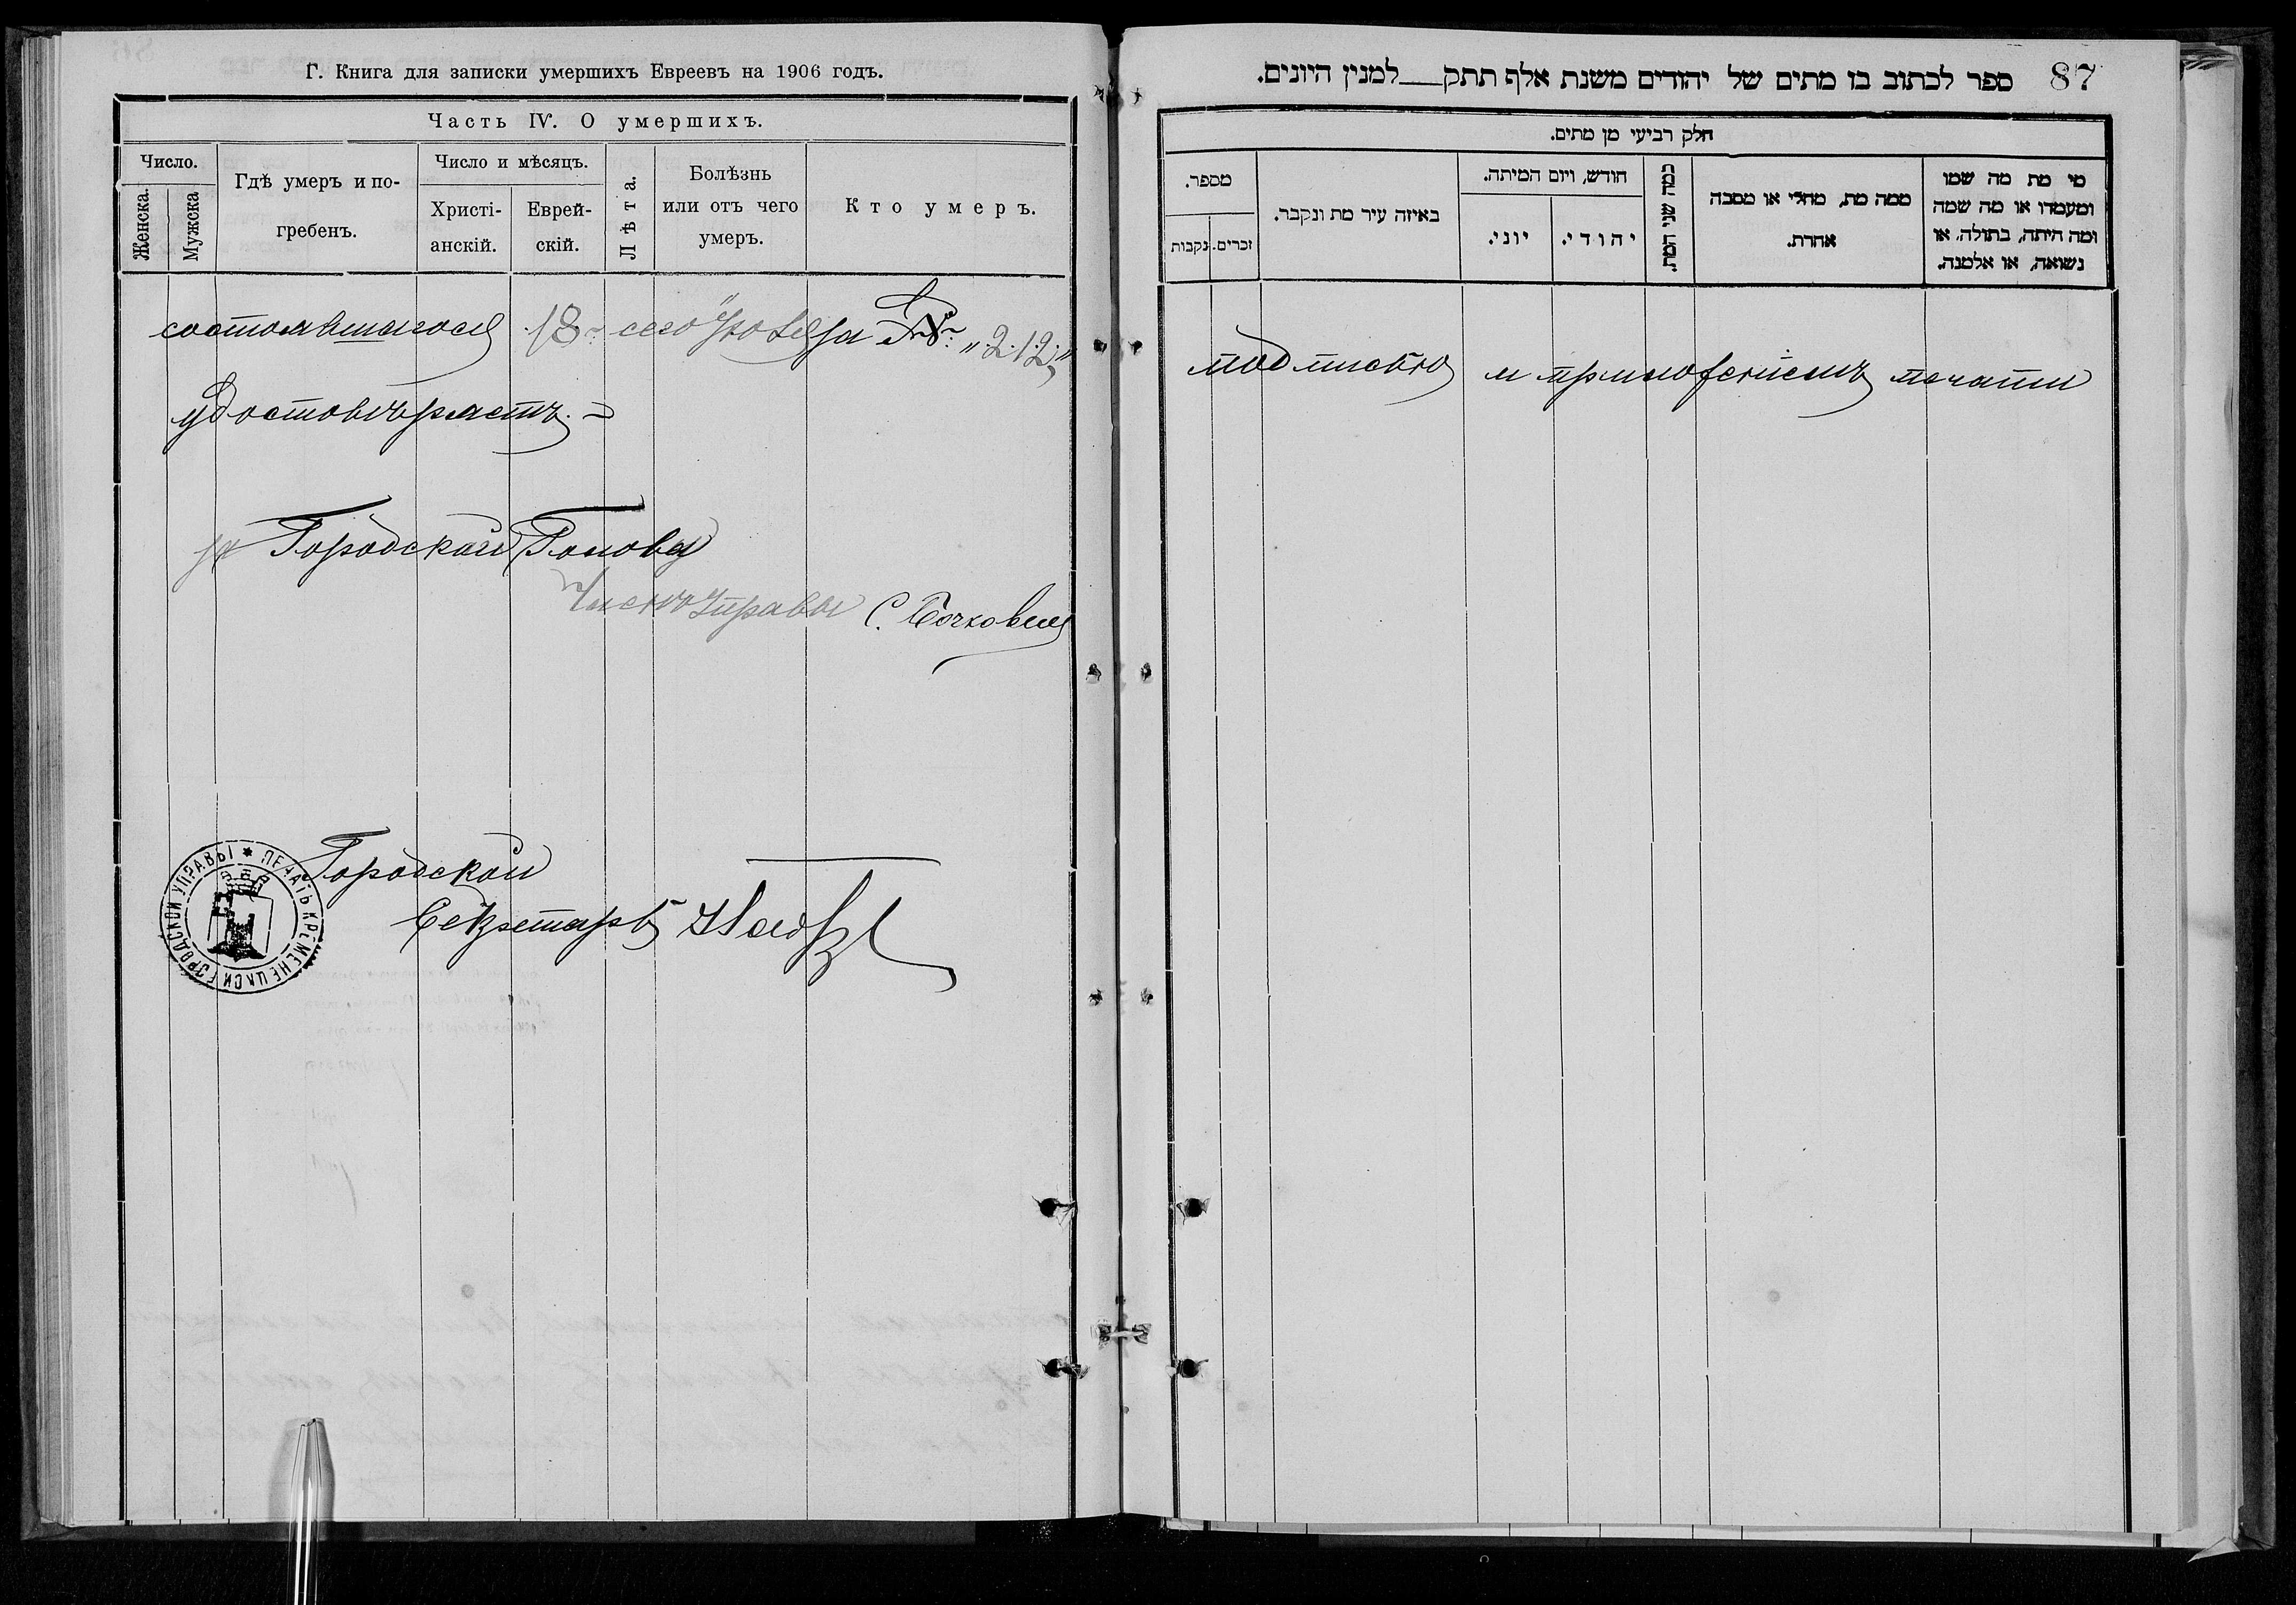 Г. Книга для записки умершихъ Евреевъ на 1906 годъ.
Часть IV. О умершихъ.
Число.
Женска.
Мужска
Гдѣ умеръ и по-
гребенъ.
Число и мѣсяцъ.
Христі-
анскій.
Еврей-
скій.
Лѣта.
Болѣзнь
или отъ чего
умеръ.
Кто умеръ.
состоявшагося 18 сего Іюля за № "212"
удостовѣряетъ.
за Городской Голова
Членъ Управы С.
Городской
Секретарь
ПЕЧАТЬ КРЕМЕНЕЦКОЙ ГОРОДСКОЙ УПРАВЫ
87
ספר לכתוב בו מתים של יהודים משנת אלף תתק למנין היונים.
חלק רביעי מן מתים.
מספר.
זכרים.
נקבות
באיזה עיר מת ונקבר.
חודש, ויום המיתה.
יוני.
יהודי.
כמה שני המת.
ממה מת, מחלי או מסבה
אחרת.
מי מת מה שמו
ומעמדו או מה שמה
ומה היתה, בתולה, או
נשואה, או אלמנה.
подписью и приложеніемъ печати